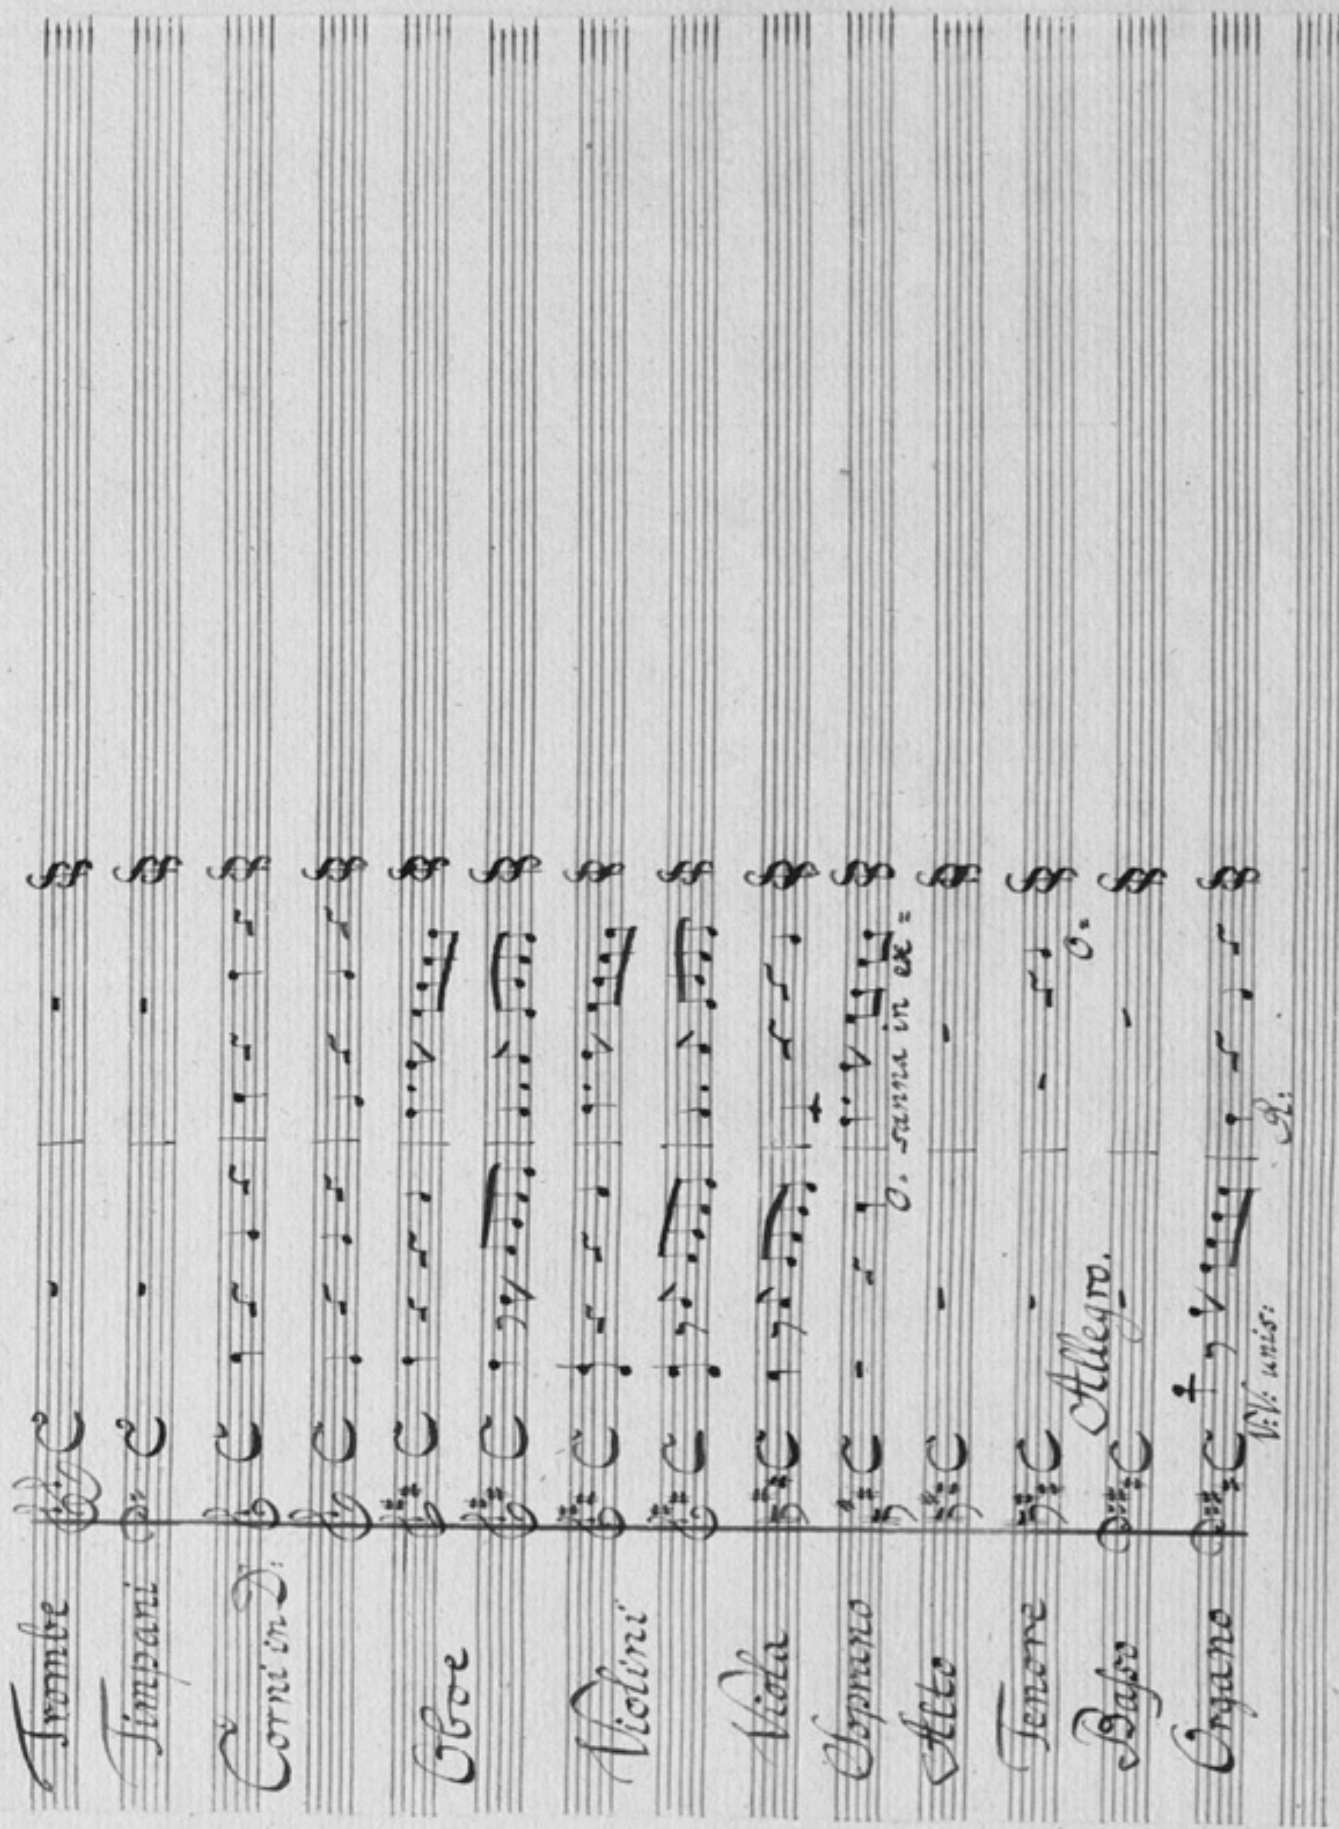 Trombe
Timpani
Corni in D:
Oboe
Violini
Viola
Soprano
O- sanna in ex =
Alto
Tenore
O=
Allegro.
Baſso
Organo
V:V: unis: